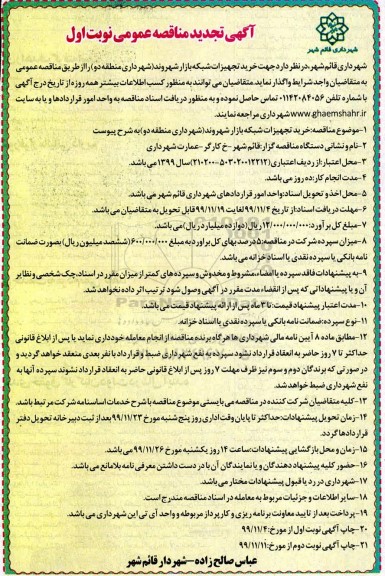 آگهی تجدید مناقصه عمومی نوبت اول
شهرداری قائم شهر
شهرداری قائم شهر، در نظر دارد جهت خرید تجهیزات شبکه بازار شهروند (شهرداری منطقه دو) را از طریق مناقصه عمومی
به متقاضیان واجد شرایط واگذار نماید. متقاضیان می توانند به منظور کسب اطلاعات بیشتر همه روزه از تاریخ درج آگهی
با شماره تلفن ۰۱۱۴۲۰۸۴۰۵۶ تماس حاصل نموده و به منظور دریافت اسناد مناقصه به واحد امور قراردادها و یا به سایت
www.ghaemshahr.ir شهرداری مراجعه نمایند.
۱-موضوع مناقصه: خرید تجهیزات شبکه بازار شهروند (شهرداری منطقه دو) به شرح پیوست
۲-نام و نشانی دستگاه مناقصه گزار: قائم شهر -خ کارگر -عمارت شهرداری
۳-محل اعتبار: از ردیف اعتباری (۵۰۳۰۲۰۰۱۲۲۱۲-۲۱۰۲۰۰) سال ۱۳۹۹ می باشد.
۴-مدت انجام کار: ده روز می باشد.
۵-محل اخذ و تحویل اسناد: واحد امور قراردادهای شهرداری قائم شهر می باشد.
۶-مهلت دریافت اسناد: از تاریخ ۹۹/۱۱/۴ لغایت ۹۹/۱۱/۱۹ قابل تحویل به متقاضیان می باشد.
۷-مبلغ کل برآورد: ۱۲/۰۰۰/۰۰۰/۰۰۰ ریال (دوازده میلیارد ریال) می باشد.
۸-میزان سپرده شرکت در مناقصه: ۵ درصد بهای کل برآورد به مبلغ ۶۰۰/۰۰۰/۰۰۰ (ششصد میلیون ریال) بصورت ضمانت
نامه بانکی یا سپرده نقدی یا اسناد خزانه می باشد.
۹-به پیشنهادات فاقد سپرده یا امضاء، مشروط و مخدوش و سپرده های کمتر از میزان مقرر در اسناد، چک شخصی و نظایر
آن و یا پیشنهاداتی که پس از انقضاء مدت مقرر در آگهی وصول شود ترتیب اثر داده نخواهد شد.
۱۰-مدت اعتبار پیشنهاد قیمت: تا ۳ ماه پس از ارائه پیشنهاد قیمت می باشد.
۱۱-نوع سپرده: ضمانت نامه بانکی یا سپرده نقدی یا اسناد خزانه.
۱۲-مطابق ماده ۸ آیین نامه مالی شهرداری ها هرگاه برنده مناقصه از انجام معامله خودداری نماید یا پس از ابلاغ قانونی
حداکثر تا ۷ روز حاضر به انعقاد قرارداد نشود سپرده به نفع شهرداری ضبط و قرارداد با نفر بعدی منعقد خواهد گردید و
در صورتی که برندگان دوم و سوم نیز ظرف مهلت ۷ روز پس از ابلاغ قانونی حاضر به انعقاد قرارداد نشوند سپرده آنها به
نفع شهرداری ضبط خواهد شد.
۱۳-کلیه متقاضیان شرکت کننده در مناقصه می بایستی موضوع مناقصه با شرح خدمات اساسنامه شرکت مرتبط باشد.
۱۴-زمان تحویل پیشنهادات: حداکثر تا پایان وقت اداری روز پنج شنبه مورخ ۹۹/۱۱/۲۳ بعد از ثبت دبیرخانه تحویل دفتر
قراردادها گردد.
۱۵-زمان و محل بازگشایی پیشنهادات: ساعت ۱۴ روز یکشنبه مورخ ۹۹/۱۱/۲۶ می باشد.
۱۶-حضور کلیه پیشنهاد دهندگان و یا نمایندگان آن با در دست داشتن معرفی نامه بلامانع می باشد.
۱۷-شهرداری در رد یا قبول پیشنهادات مختار می باشد.
۱۸-سایر اطلاعات و جزئیات مربوط به معامله در اسناد مناقصه مندرج است.
۱۹-پرداخت بعد از تایید معاونت برنامه ریزی و کارپرداز مربوطه و واحد آی تی این شهرداری می باشد.
۲۰-چاپ آگهی نوبت اول از مورخ: ۹۹/۱۱/۴
۲۱-چاپ آگهی نوبت دوم از مورخ: ۹۹/۱۱/۱۱
عباس صالح زاده -شهردار قائم شهر